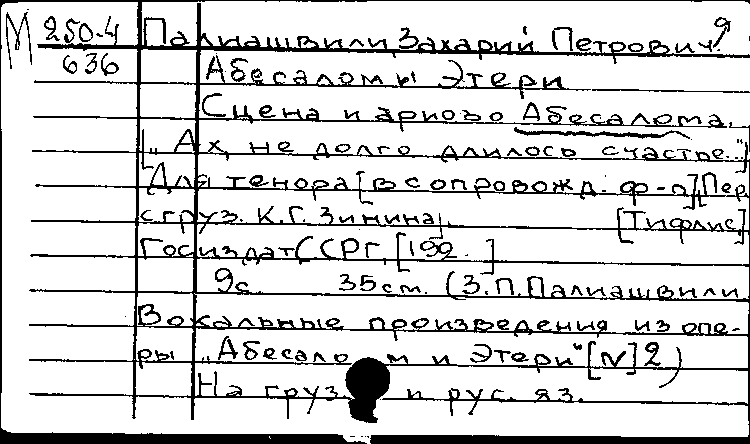 М 250-4 Палиашвили, Захарий Петрович. 9
636 Абесалом ы Этери
Сцена и ариозо Абесалома.
["Ах, не долго длилось счастье..."]
Для тенора [в сопровожд. ф-п] [Пер
с груз. К.Г. Зинина]. [Тифлис]
Госиздат ССРГ, [192 ]
9с. 35см. (З.П. Палиашвили.
Вокальные произведения из опе-
ры "Абесалом и Этери" [N] 2)
На груз. и рус. яз.